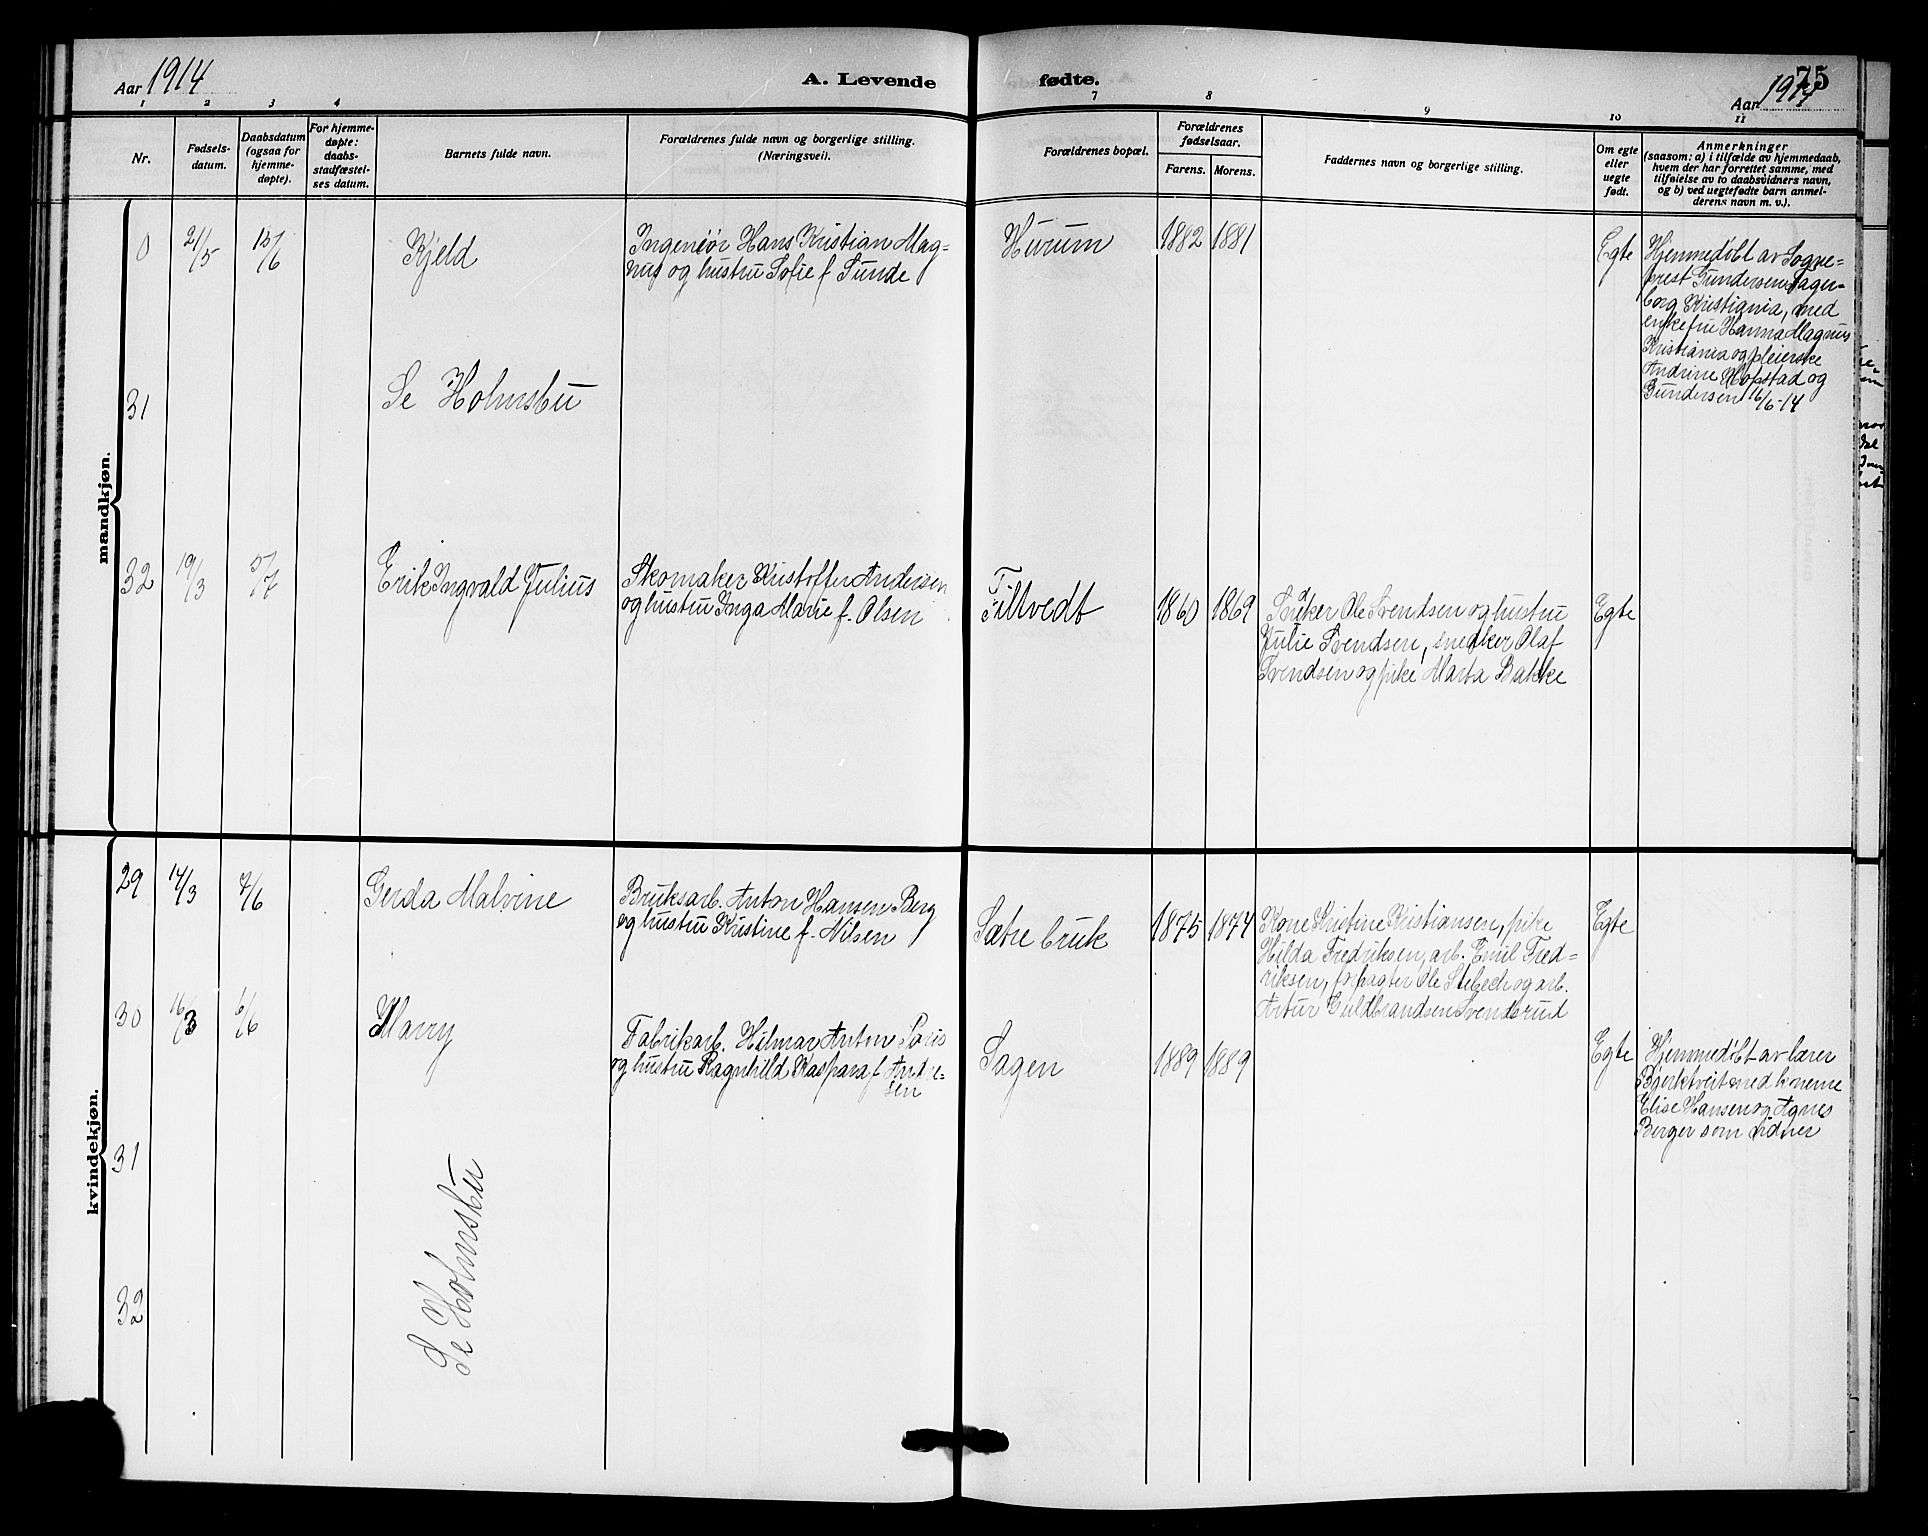 Aar 1914
A. Levende fødte.
75
Aar 1914
1 2 3 4 7 8 9 10 11
Nr.
Fødsels-
datum.
Daabsdatum
(ogsaa for
hjemme-
døpte).
For hjemme-
døpte:
daabs-
stadfæstel-
ses datum.
Barnets fulde navn.
Forældrenes fulde navn og borgerlige stilling.
(Næringsvei).
Forældrenes bopæl.
Forældrenes
fødselsaar.
Farens. Morens.
Faddernes navn og borgerlige stilling.
Om egte
eller
uegte
født.
Anmerkninger
(saasom: a) i tilfælde av hjemmedaab,
hvem der har forrettet samme, med
tilføielse av to daabsvidners navn,
og b) ved uegtefødte barn anmel-
derens navn m. v.).
mandkjøn.
0 21/5 15/6 Kjeld
Ingeniør Hans Kristian Mag-
nus og hustru Sofie f Sunde
Hurum 1882 1881 Egte
Hjemmedøbt av Sogne-
prest Gundersen Fager-
borg Kristiania, med
enkefru Hanna Magnus
Kristiania og pleierske
Andrine Hopstad og
Gundersen 16/6-14
31 Se Holmsbu
32 19/3 5/7 Erik Ingvald Julius
Skomaker Kristoffer Andersen
og hustru Inga Marie f. Olsen
Tiltvedt 1860 1869
Snedker Ole Svendsen og hustru
Julie Svendsen, snedker Olaf
Svendsen og pike Marta Bakke
Egte
kvindekjøn.
29 14/3 7/6 Gerda Malvine
Bruksarb. Anton Hansen Berg
og hustru Kristine f. Nilsen
Sætre bruk 1875 1874
Kone Kristine Kristiansen, pike
Hilda Fredriksen, arb. Emil Fred=
riksen, forpagter Ole Stibech og arb.
Artur Guldbrandsen Svendsrud
Egte
30 16/3 6/6 Marry
Fabrikarb. Hilmar Anton
og hustru Ragnhild Kaspara f Andre-
sen
Sagen 1889 1889 Egte
Hjemmedøbt av lærer
Bjerktveit med konerne
Elise Hansen og Agnes
Berger som vidner
31
32
Se Holmsbu